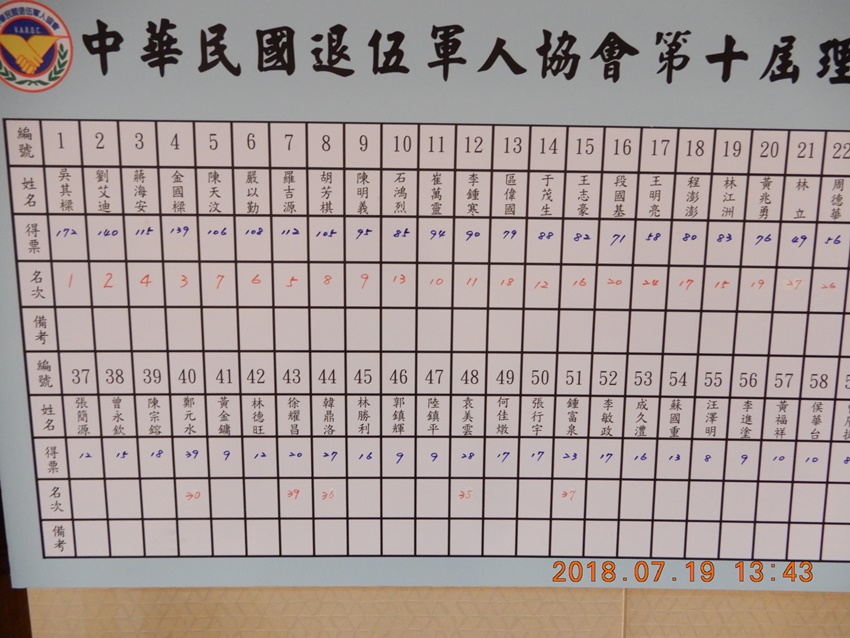 中華民國退伍軍人協會第十屆理
編號 1 2 3 4 5 6 7 8 9 10 11 12 13 14 15 16 17 18 19 20 21 22
姓名 吳其樑 劉艾迪 蔣海安 金國樑 陳天汶 嚴以勤 羅吉源 胡芳棋 陳明義 石鴻烈 崔萬靈 李鍾寒 區偉國 于茂生 王志豪 段國基 王明亮 程澎澎 林江洲 黃兆勇 林立 周德華
得票 172 140 115 139 106 108 112 105 95 85 94 90 79 88 82 71 58 80 83 76 49 56
名次 1 2 4 3 7 6 5 8 9 13 10 11 18 12 16 20 24 17 15 19 27 26
備考
編號 37 38 39 40 41 42 43 44 45 46 47 48 49 50 51 52 53 54 55 56 57 58
姓名 張簡源 曾永欽 陳宗鎔 鄭元水 黃金鏞 林德旺 徐耀昌 韓鼎洛 林勝利 郭鎮輝 陸鎮平 袁美雲 何佳燉 張行宇 鍾富泉 李敏政 成久澧 蘇國重 汪澤明 李進塗 黃福祥 侯華台
得票 12 15 18 39 9 12 20 27 16 9 9 28 17 17 23 17 16 13 8 9 10 10 8
名次 30 39 36 35 37
備考
2018.07.19 13:43